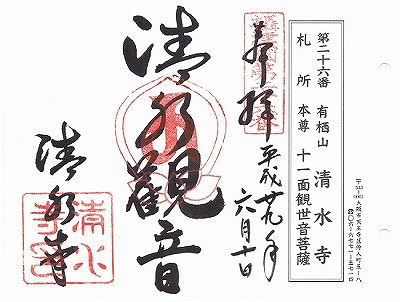 第二十六番 有栖山 清水寺
札所 本尊 十一面観世音菩薩
奉拝 平成廿九年
六月十日
清水観音
清水寺